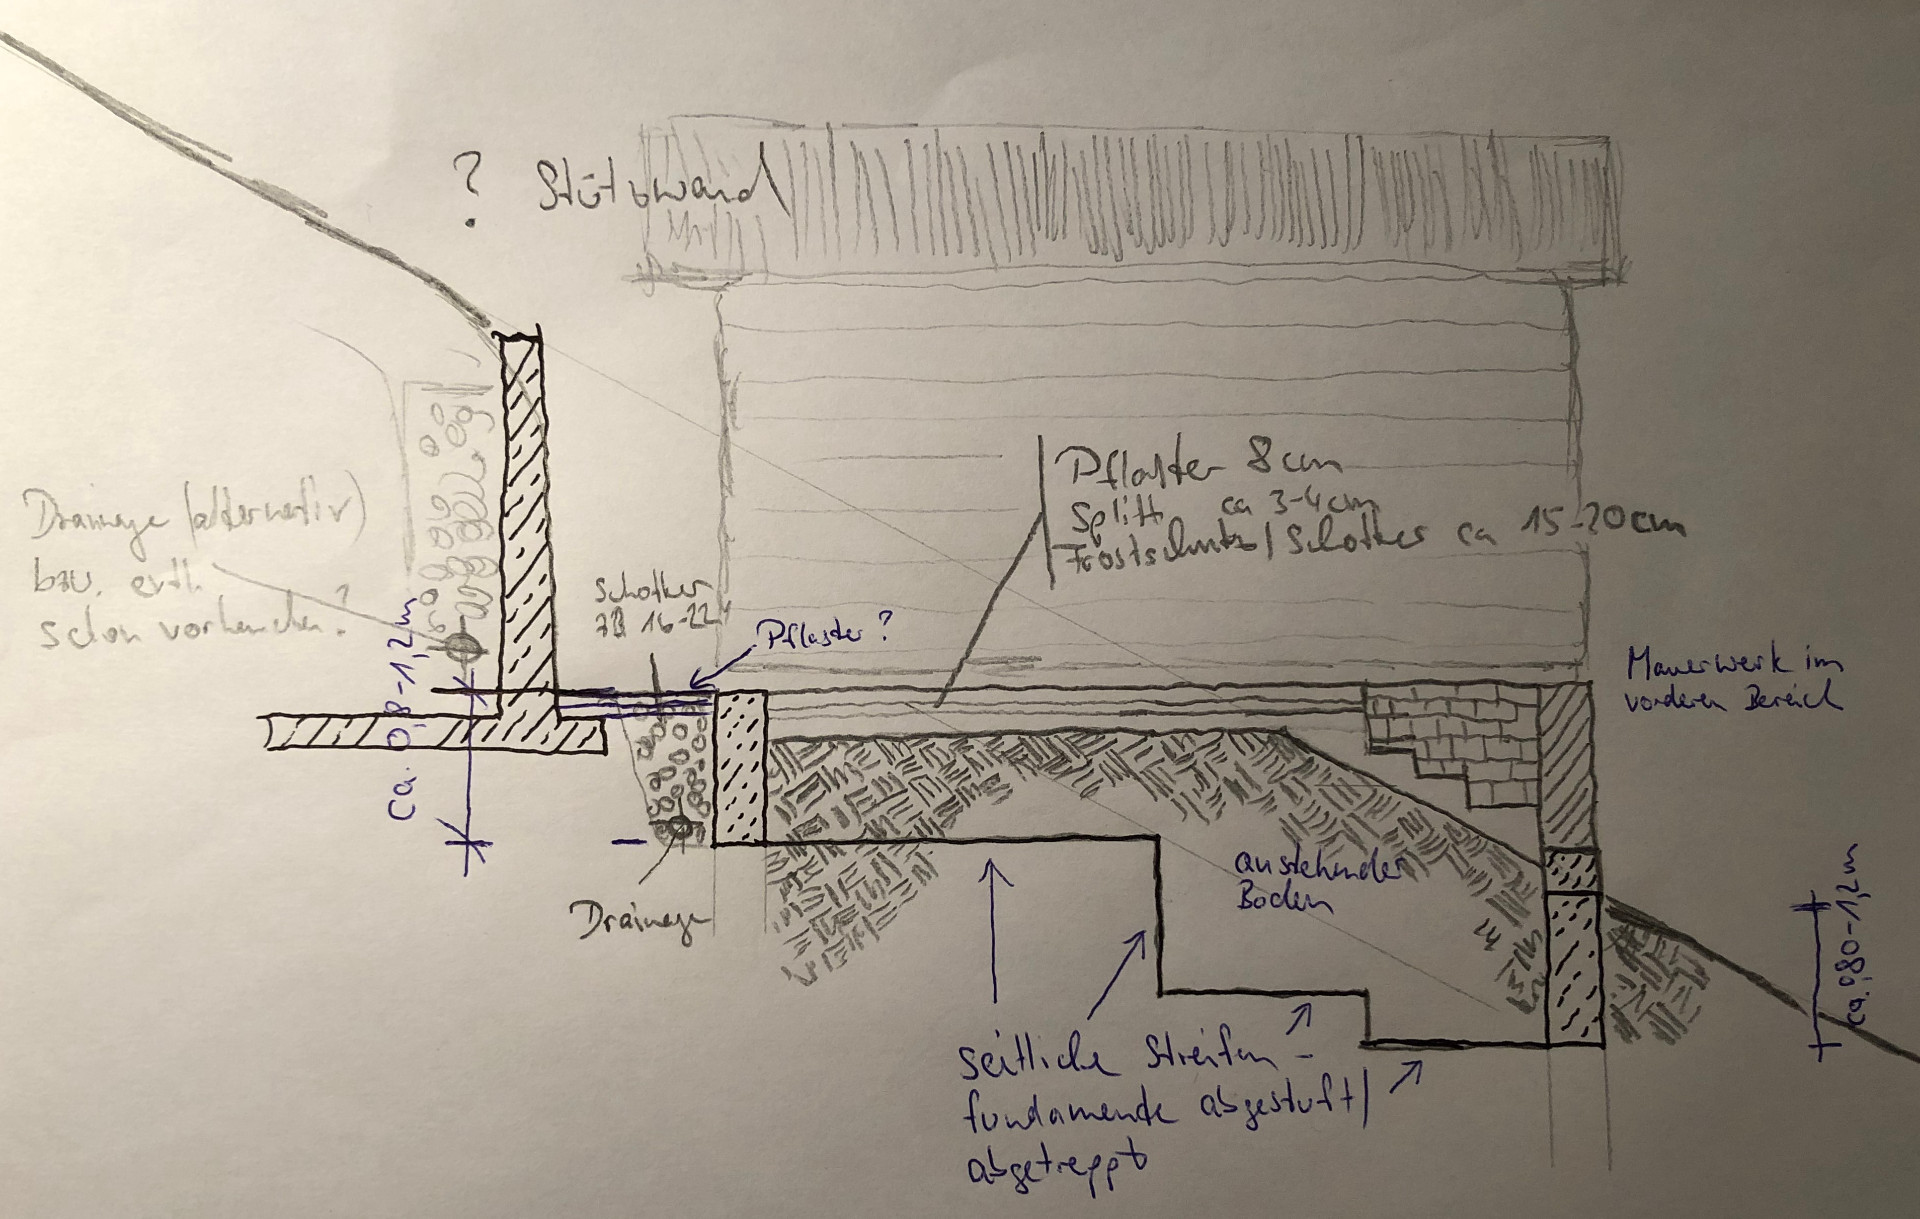 ? Stützwand
Pflaster 8cm
Splitt ca 3-4cm
Frostschutz/Schotter ca 15-20cm
Drainage (alternativ)
bzw. evtl.
schon vorhanden?
Schotter
zB 16-22
Pflaster?
ca. 0,8-1,2m
Mauerwerk im
vorderen Bereich
anstehender
Boden
Drainage
ca. 0,80-1,2m
seitliche Streifen-
fundamente abgestuft/
abgetreppt